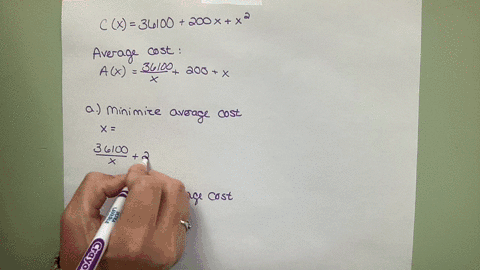 C(x) = 36100 + 200x + x²
Average cost:
A(x) = 36100/x + 200 + x
a.) minimize average cost
x =
36100/x + 2
age cost